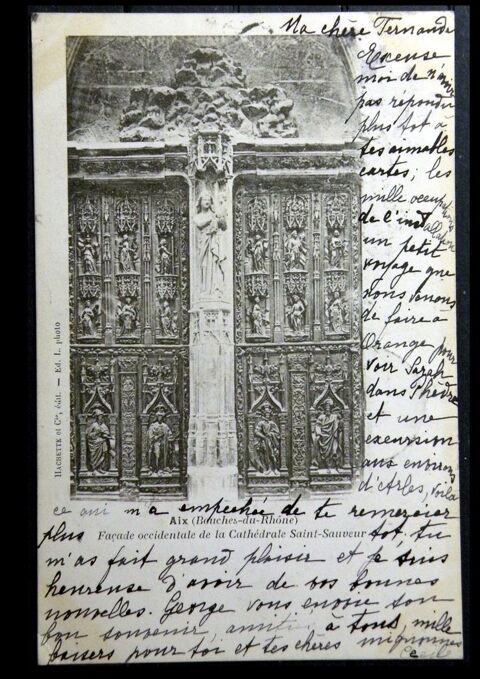 Ma chère Fernande
Excuse
moi de n'avoir
pas répondu
plus tôt à
tes aimables
cartes, les
mille occupations
de l'inst
un petit
voyage que
nous venons
de faire à
Orange pour
voir Sarah
dans Phèdre
et une
excursion
aux environs
d'Arles, voila
ce qui m'a empechée de te remercier
plus tot. tu
m'as fait grand plaisir et je suis
heureuse d'avoir de vos bonnes
nouvelles. George vous envoie son
bon souvenir, à tous, mille
baisers pour toi et tes chères mignonnes
Cecile
HACHETTE et Cie, édit. — Ed. L. photo
Aix (Bouches-du-Rhône)
Façade occidentale de la Cathédrale Saint-Sauveur